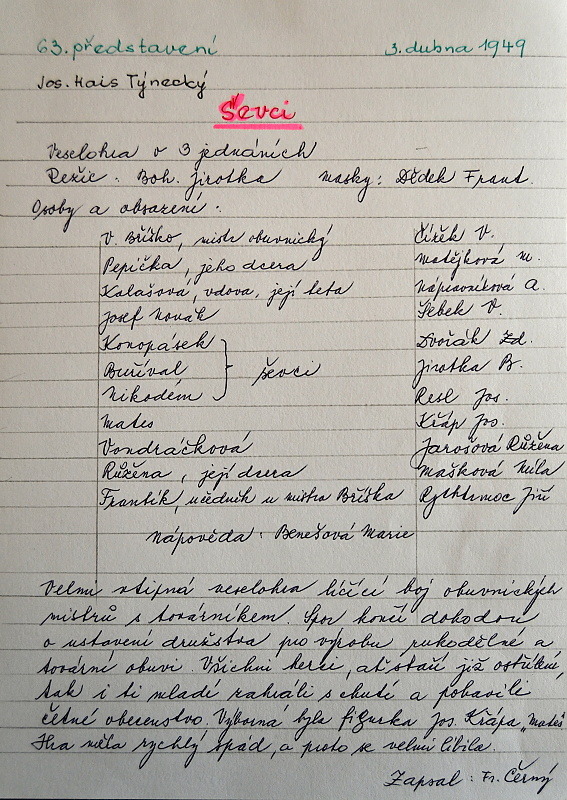 63. představení 3. dubna 1949
Jos. Hais Týnecký
Ševci
Veselohra v 3 jednáních
Režie: Boh. Jirotka masky: Dědek Frant.
Osoby a obsazení:
V. Bříško, mistr obuvnický Čížek V.
Pepička, jeho dcera Matějková M.
Kalašová, vdova, její teta Nápravníková A.
Josef Novák Šebek V.
Konopásek Dvořák Zd.
Buříval } ševci Jirotka B.
Nikodém Resl Jos.
Mates Křáp Jos.
Vondráčková Jarošová Růžena
Růžena, její dcera Mašková Míla
Frantík, učedník u mistra Bříška Rychtrmoc Jiří
Nápověda: Benešová Marie
Velmi vtipná veselohra líčící boj obuvnických
mistrů s továrníkem. Spor končí dohodou
o ustavení družstva pro výrobu rukodělné a
tovární obuvi. Všichni herci, ať staří již ostřílení,
tak i ti mladé zahráli s chutí a pobavili
četné obecenstvo. Výborná byla figurka Jos. Křápa „Mates".
Hra měla rychlý spád, a proto se velmi líbila.
Zapsal: Fr. Černý